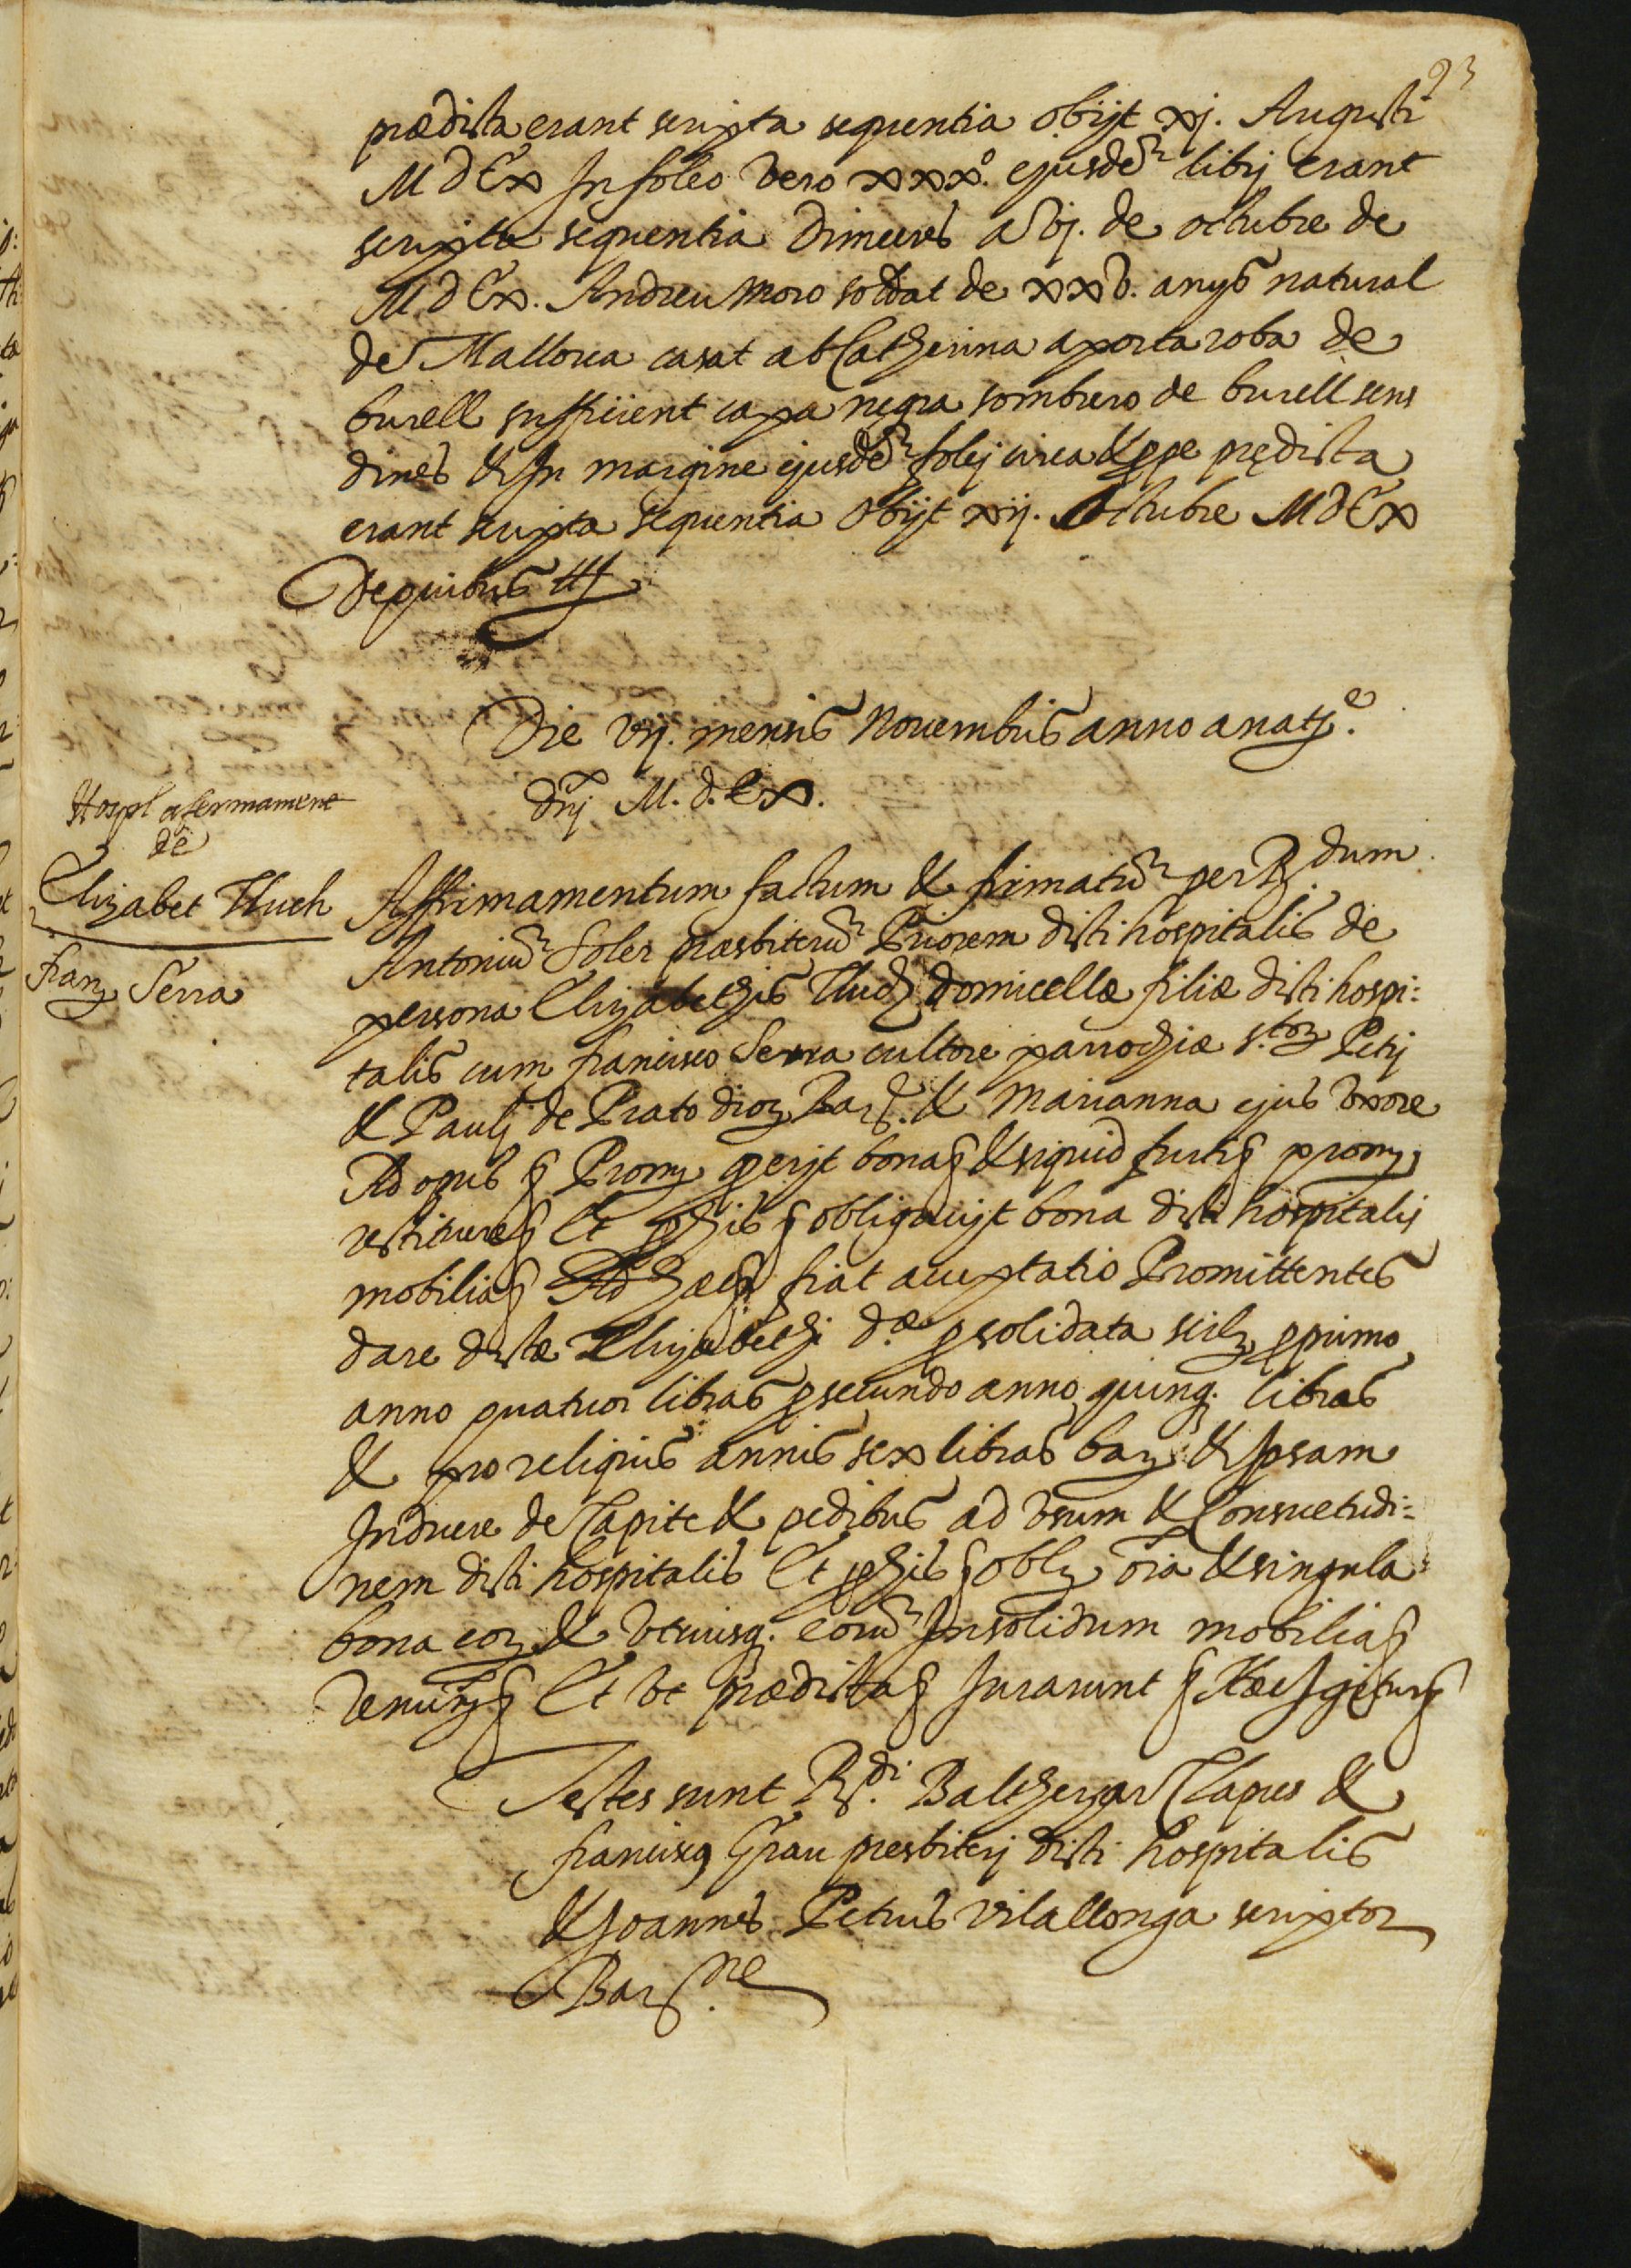 93
prædicta erant scripta sequentia Obijt xj. Augusti
M d Cx In foleo vero xxx.º ejusdẽ librj erant
scripta sequentia Dimecres a vj. de octubre de
M d Cx. Andreu Moro soldat de xxv. anys natural
de Mallorca casat ab Catherina aporta roba de
burell sufficient capa negra sombrero de burell sens
dines & In margine ejusdẽ folij circa & ppe prędicta
erant scripta sequentia Obijt xij. Octubre M d Cx
De quibus &c
Die vij. mensis Novembris anno a nat.e
Dnj M. d. C x.
Hospl afermament
de
Elizabet Lluch
Franz Serra
Affirmamentum factum & firmatũ per Rdum.
Antoniũ Soler præsbiterũ Priorem dicti hospitalis de
persona Elizabethis Lluch domicellæ filiæ dicti hospi:
talis cum francisco Serra cultore parrochiæ s.torz Petrj
& Paulj de Prato dioz Bar. & Marianna ejus vxore
Ad opus &c Promz gerijt bona &c & siquid furti &c promz
restituere &c Et p his &c obligavjt bona dicti hospitalis
mobilia &c Ad hæc &c fiat acceptatio Promittentes
dare dictæ Elizabethj d.æ p solidata scilz p primo
anno quatuor libras p secundo anno quinq. libras
& pro reliquis annis sex libras barz & Ipsam
Induere de Capite & pedibus ad vsum & Consuetudi:
nem dicti hospitalis Et p his &c oblz oĩa & singula
bona eorz & vtriusq. eorũ Insolidum mobilia &c
Renunz &c Et vt prædicta &c Jurarunt &c Hæc Igitur &c
Testes sunt Rdi. Balthezar Clapes &
franciscq Grau presbiterj dicti hospitalis
& Joannes Petrus Vilallonga scriptor
Bar.ne